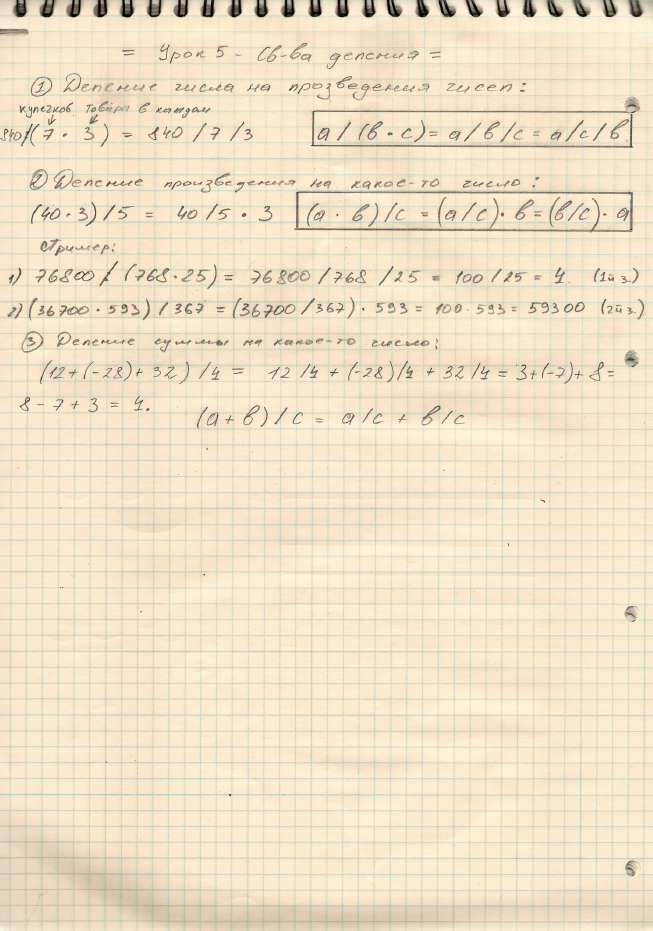 = Урок 5 - Св-ва деления =
① Деление числа на прозведения чисел:
купчков товара в каждом
840/(7 · 3) = 840 / 7 / 3
a / (b · c) = a / b / c = a / c / b.
② Деление произведения на какое-то число:
(40 · 3) / 5 = 40 / 5 · 3
(a · b) / c = (a / c) · b = (b / c) · a
Пример:
1) 76800 / (768 · 25) = 76800 / 768 / 25 = 100 / 25 = 4. (1й з.)
2) (36700 · 593) / 367 = (36700 / 367) · 593 = 100 · 593 = 59300 (2й з.)
③ Деление суммы на какое-то число:
(12 + (-28) + 32) / 4 = 12 / 4 + (-28) / 4 + 32 / 4 = 3 + (-7) + 8 =
8 - 7 + 3 = 4.
(a + b) / c = a / c + b / c